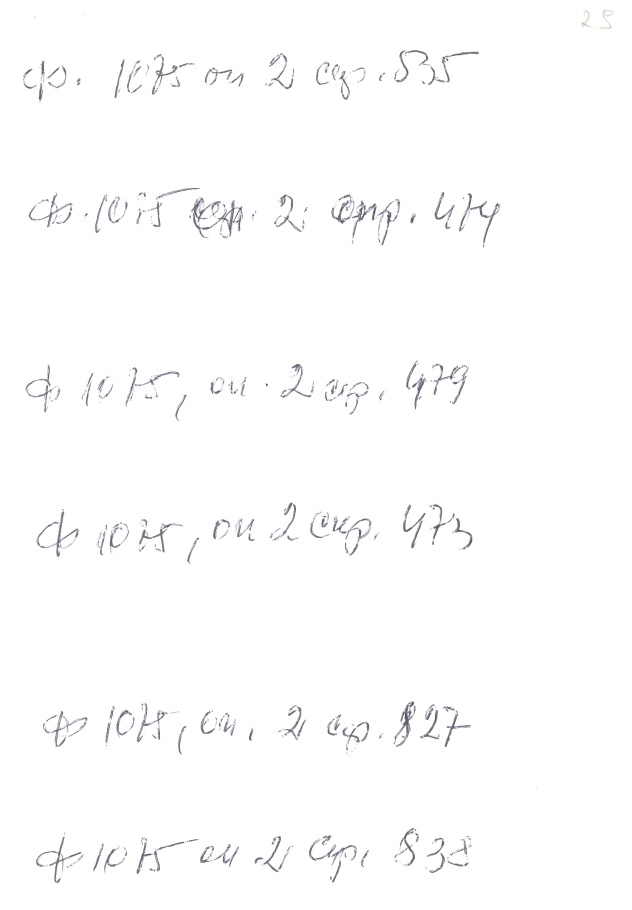 29
ф. 1075 оп 2 спр. 535
ф. 1075 оп. 2 спр. 474
ф 1075, оп. 2 спр. 479
ф 1075, оп 2 спр. 473
ф 1075, оп. 2 спр. 827
ф 1075 оп 2 спр. 838